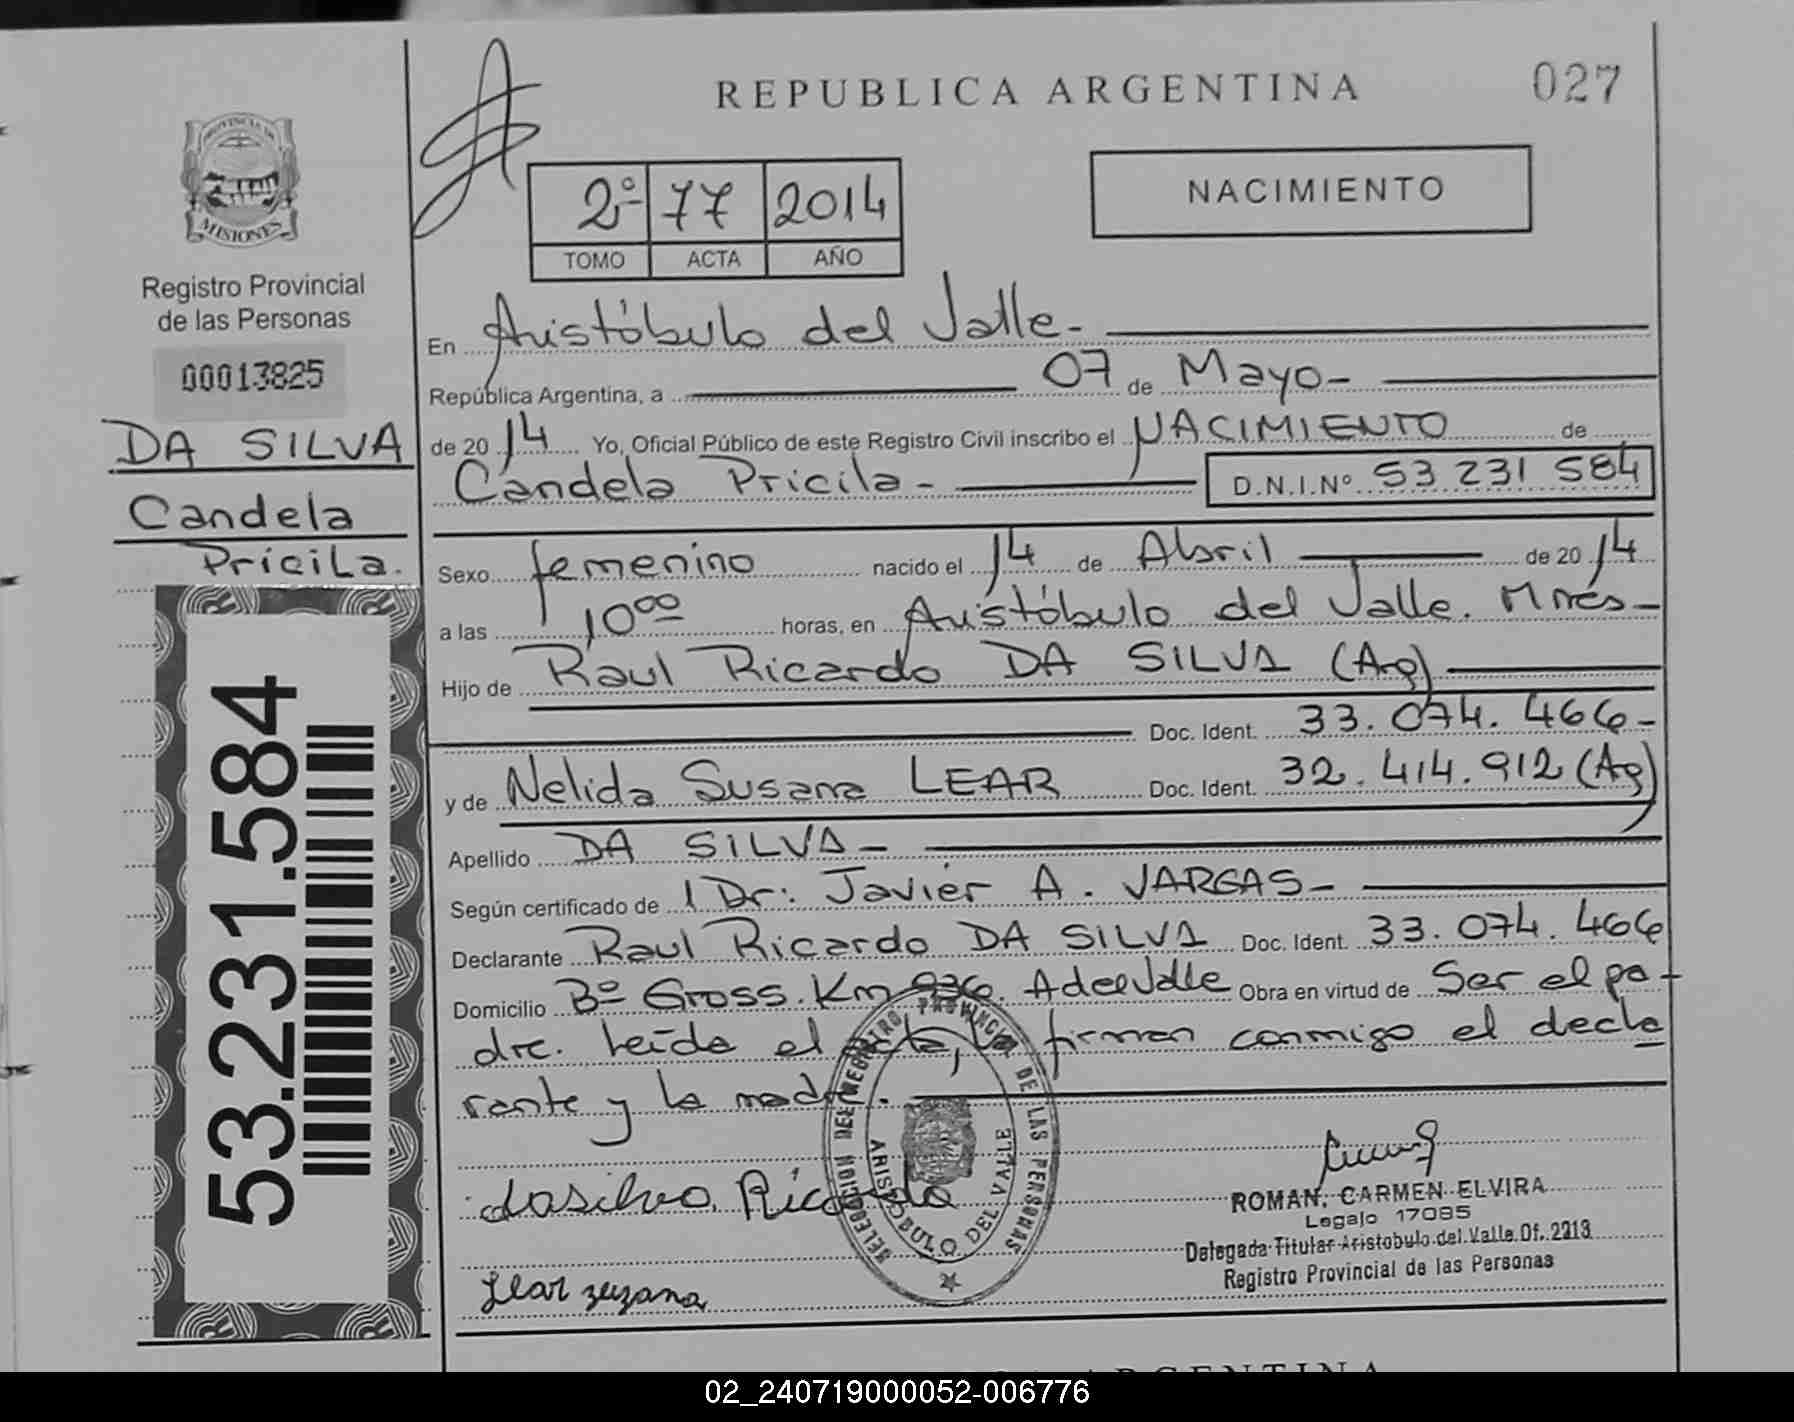 REPUBLICA ARGENTINA
027
PROVINCIA DE
MISIONES
Registro Provincial
de las Personas
00013825
DA SILVA
Candela
Pricila.
53.231.584
2º 77 2014
TOMO ACTA AÑO
NACIMIENTO
En Aristóbulo del Valle-
República Argentina, a 07 de Mayo-
de 20 14 Yo, Oficial Público de este Registro Civil inscribo el NACIMIENTO de
Candela Pricila- D.N.I.Nº 53.231 584
Sexo femenino nacido el 14 de Abril de 20 14
a las 10ºº horas, en Aristóbulo del Valle. Mnes-
Hijo de Raul Ricardo DA SILVA (Arg)
Doc. Ident. 33.074.466-
y de Nelida Susana LEAR Doc. Ident. 32.414.912 (Arg)
Apellido DA SILVA-
Según certificado de 1 Dr: Javier A. VARGAS-
Declarante Raul Ricardo DA SILVA Doc. Ident. 33.074.466
Domicilio Bº Gross. Km 936. A del Valle Obra en virtud de Ser el pa-
dre. Leida el acta, la firman conmigo el decla
rante y la madre.
dasilva, Ricardo
Lear zuzana
DELEGACION DEL REGISTRO PROVINCIAL DE LAS PERSONAS
ARISTOBULO DEL VALLE
ROMAN, CARMEN ELVIRA
Legajo 17085
Delegada Titular Aristobulo del Valle Of. 2213
Registro Provincial de las Personas
ARGENTINA
02_240719000052-006776